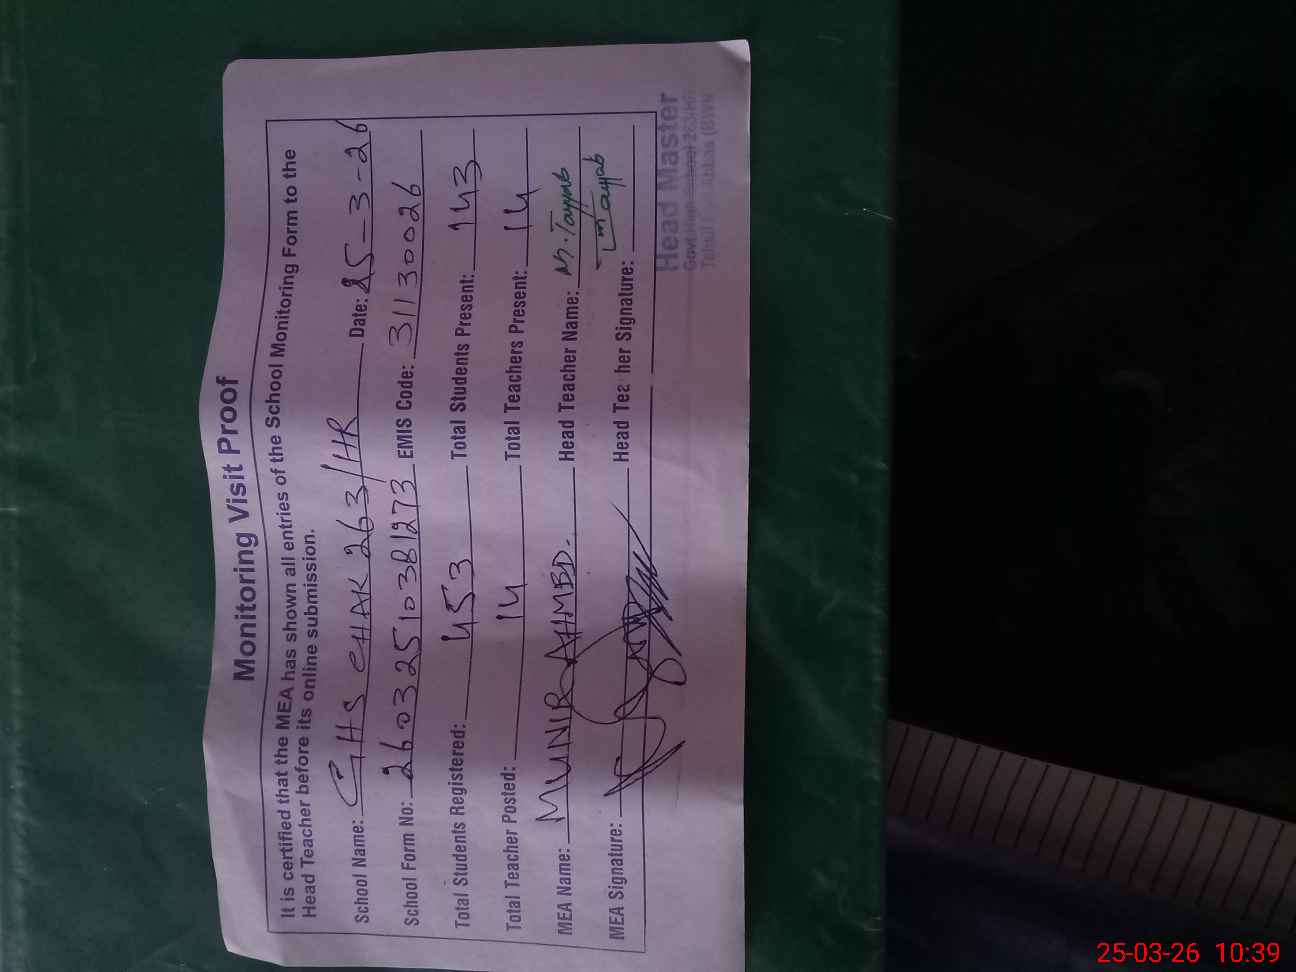 Monitoring Visit Proof
It is certified that the MEA has shown all entries of the School Monitoring Form to the
Head Teacher before its online submission.
School Name: GHS CHAK 263/HR Date: 25-3-26
School Form No: 26032510381273 EMIS Code: 31130026
Total Students Registered: 453 Total Students Present: 143
Total Teacher Posted: 14 Total Teachers Present: 14
MEA Name: MUNIR AHMED. Head Teacher Name: M. Tayyab
MEA Signature: Head Teacher Signature: Tayyab
Head Master
Govt. High School 263/HR
Tehsil Fort Abbas (BWN
25-03-26 10:39